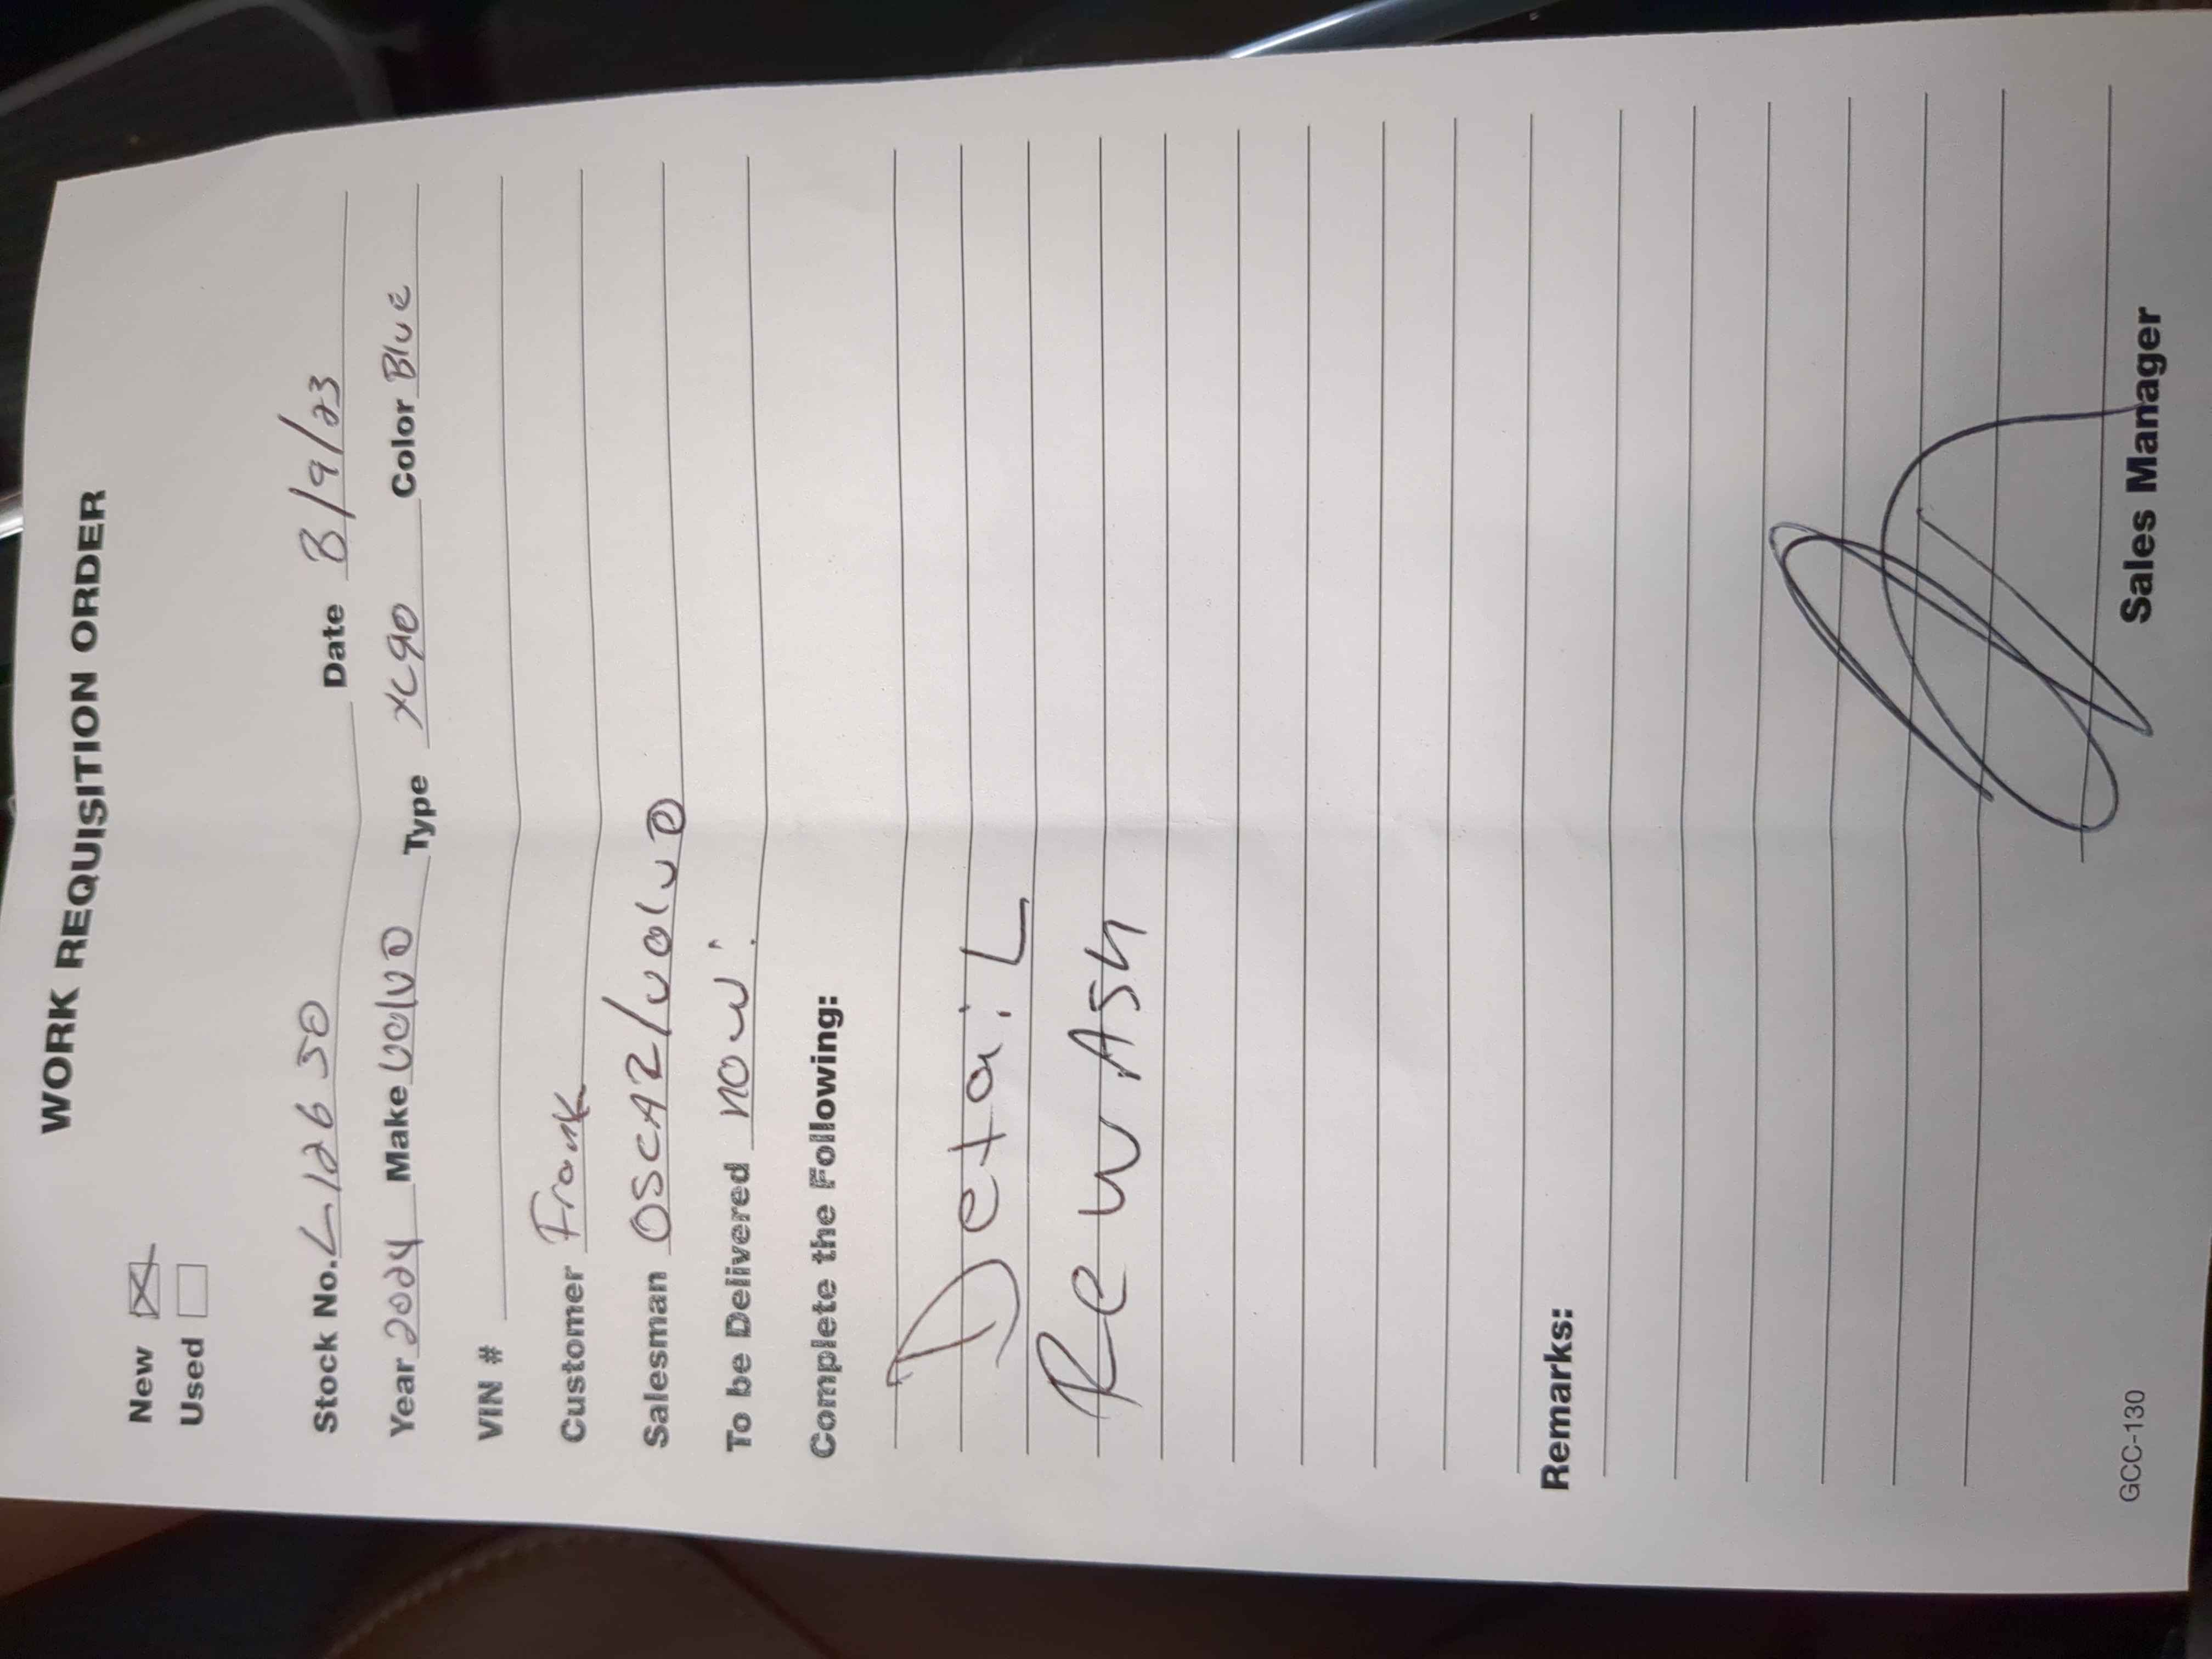 WORK REQUISITION ORDER
New
Used
Stock No. L12650 Date 8/9/23
Year 2024 Make Volvo Type XC90 Color Blue
VIN #
Customer Frank
Salesman OSCAR/Volvo
To be Delivered now.
Complete the Following:
DetaiL
RewASh
Remarks:
Sales Manager
GCC-130